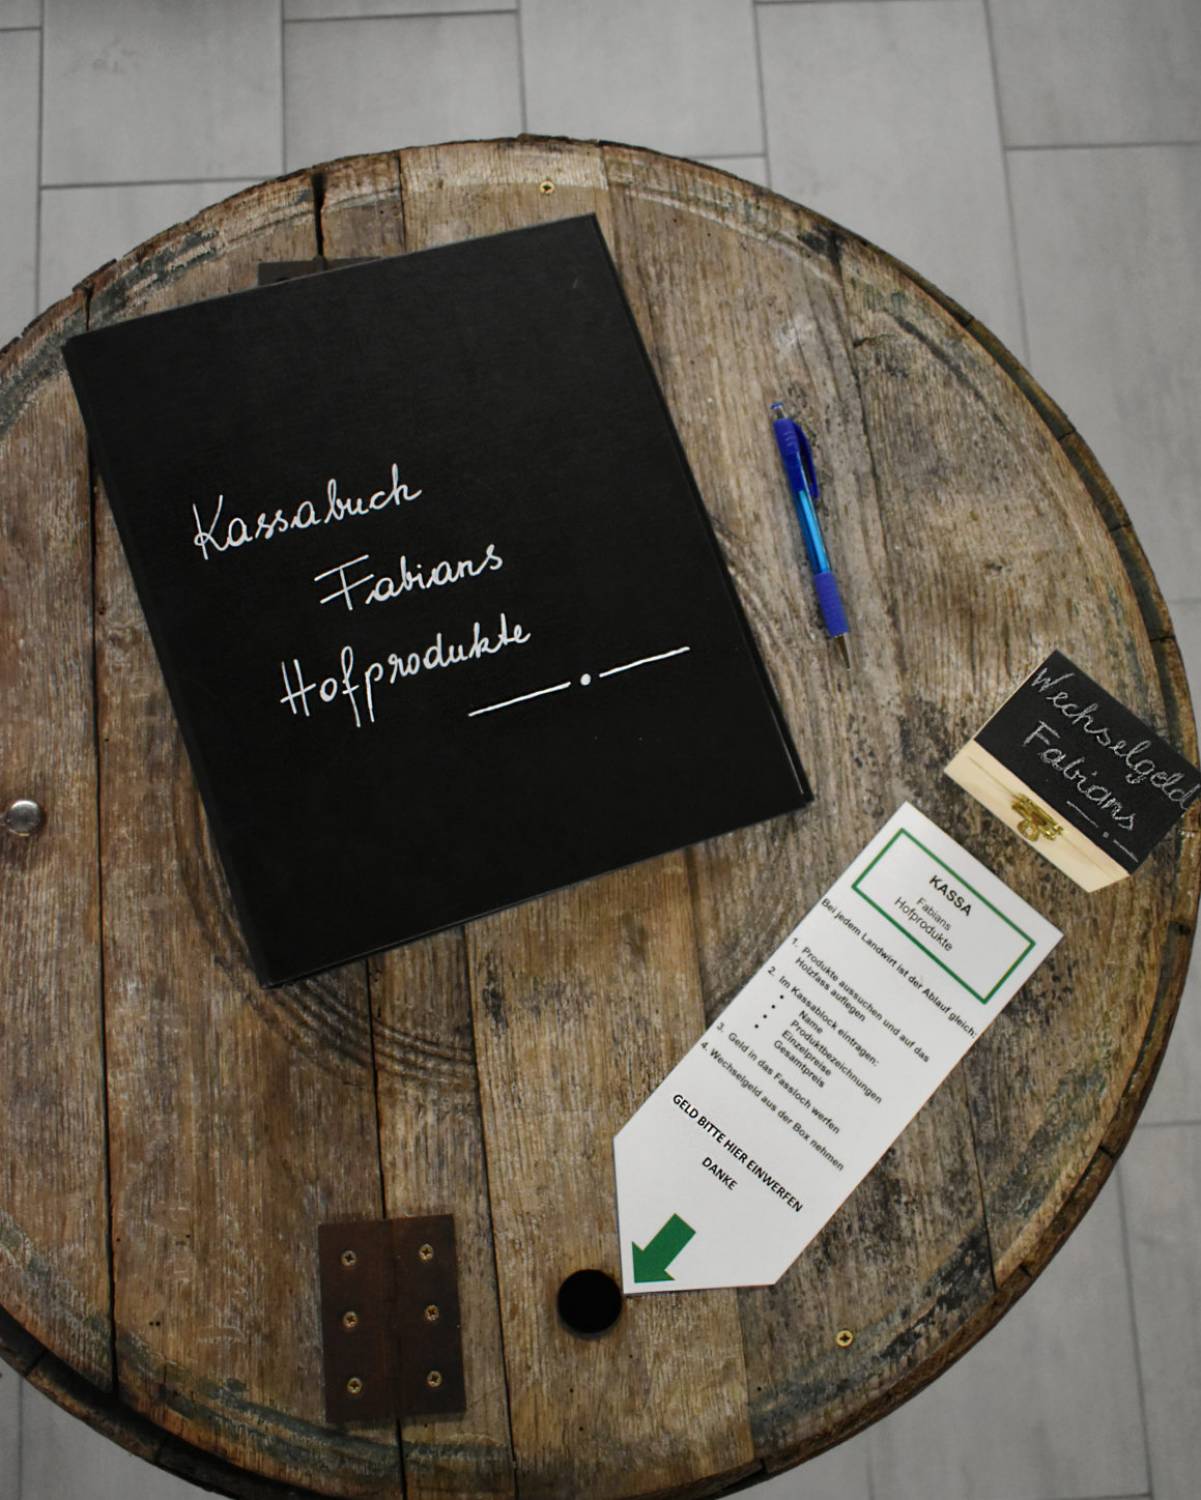 Kassabuch
Fabians
Hofprodukte
Wechselgeld
Fabians
KASSA
Fabians
Hofprodukte
Bei jedem Landwirt ist der Ablauf gleich:
1. Produkte aussuchen und auf das
Holzfass auflegen
2. Im Kassablock eintragen:
• Name
• Produktbezeichnungen
• Einzelpreise
• Gesamtpreis
3. Geld in das Fassloch werfen
4. Wechselgeld aus der Box nehmen
GELD BITTE HIER EINWERFEN
DANKE